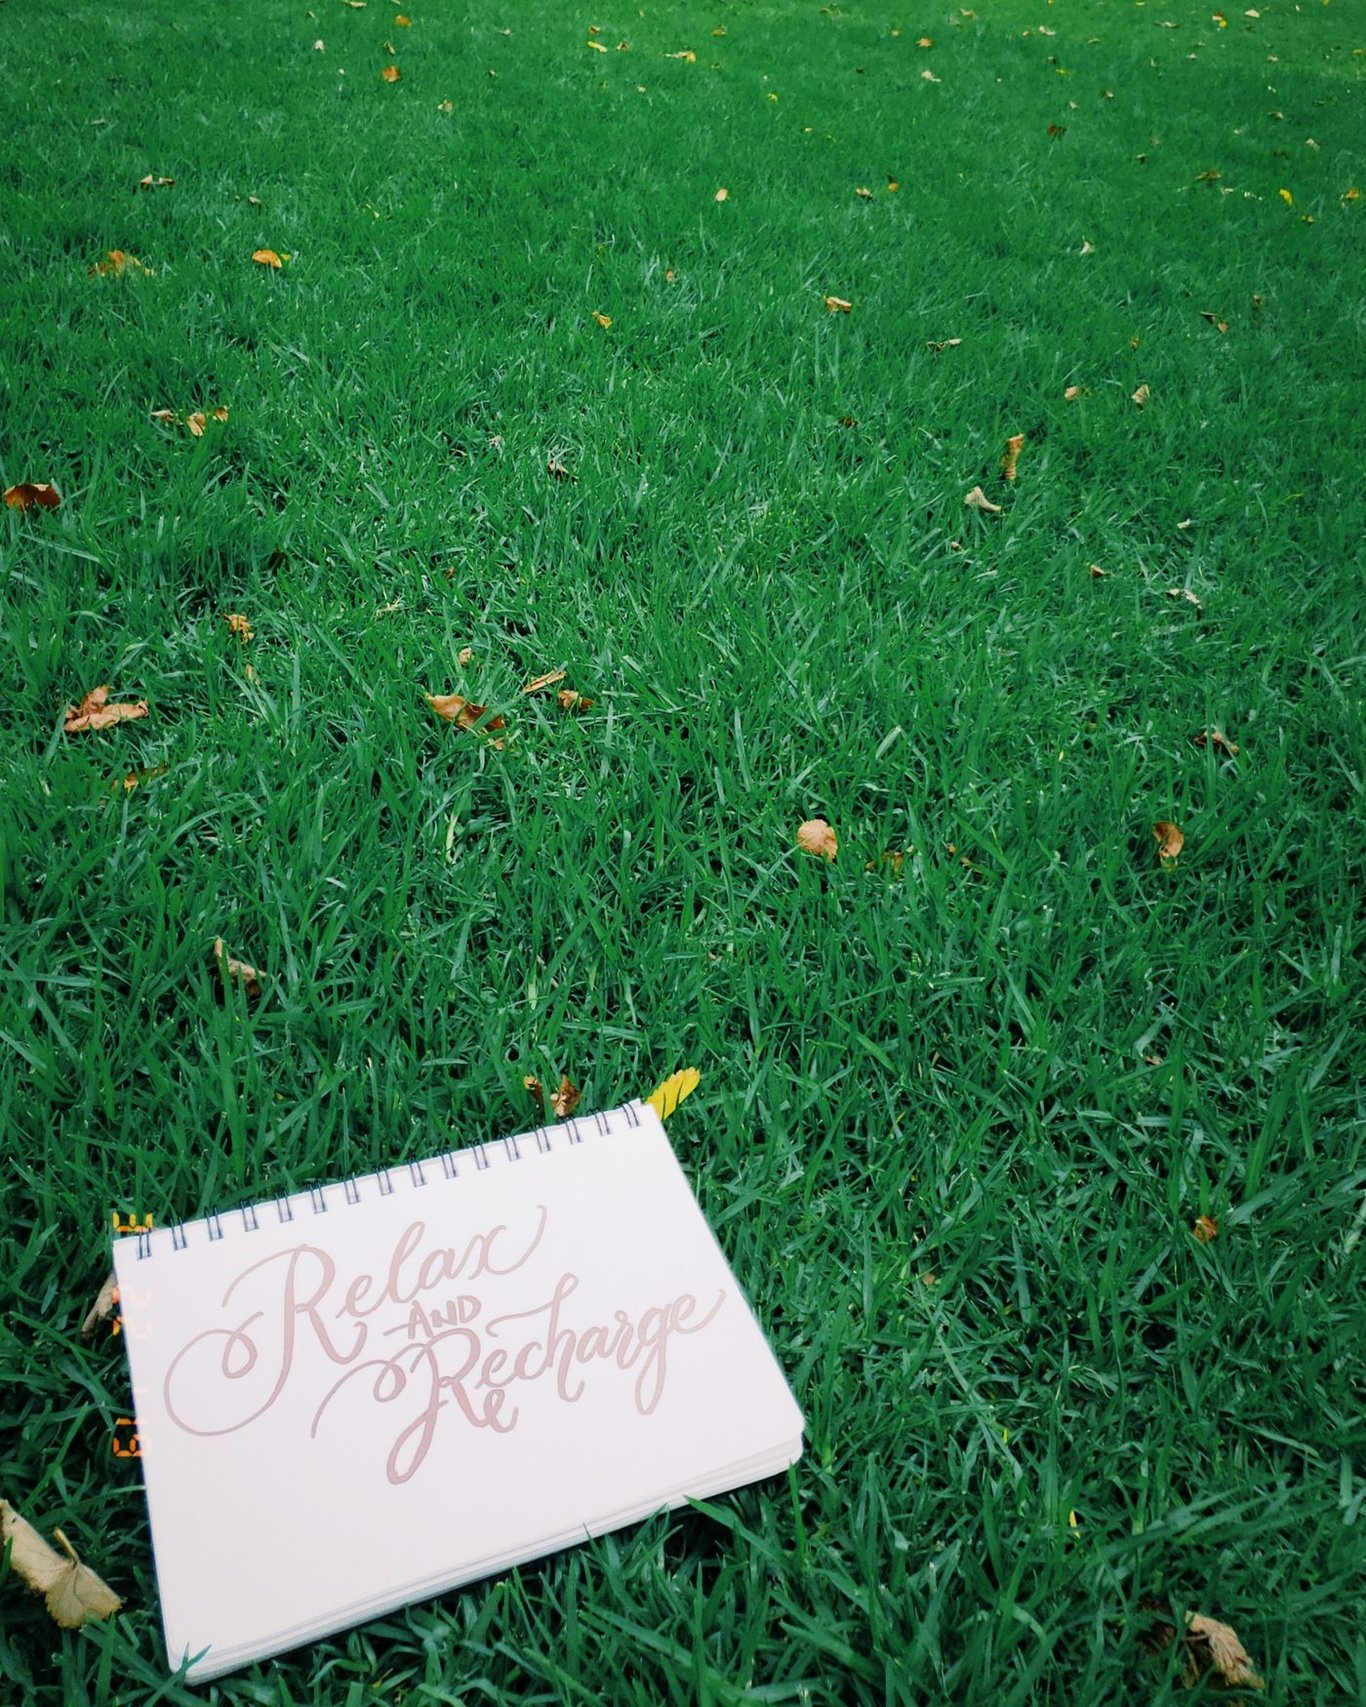 Relax
AND
Recharge